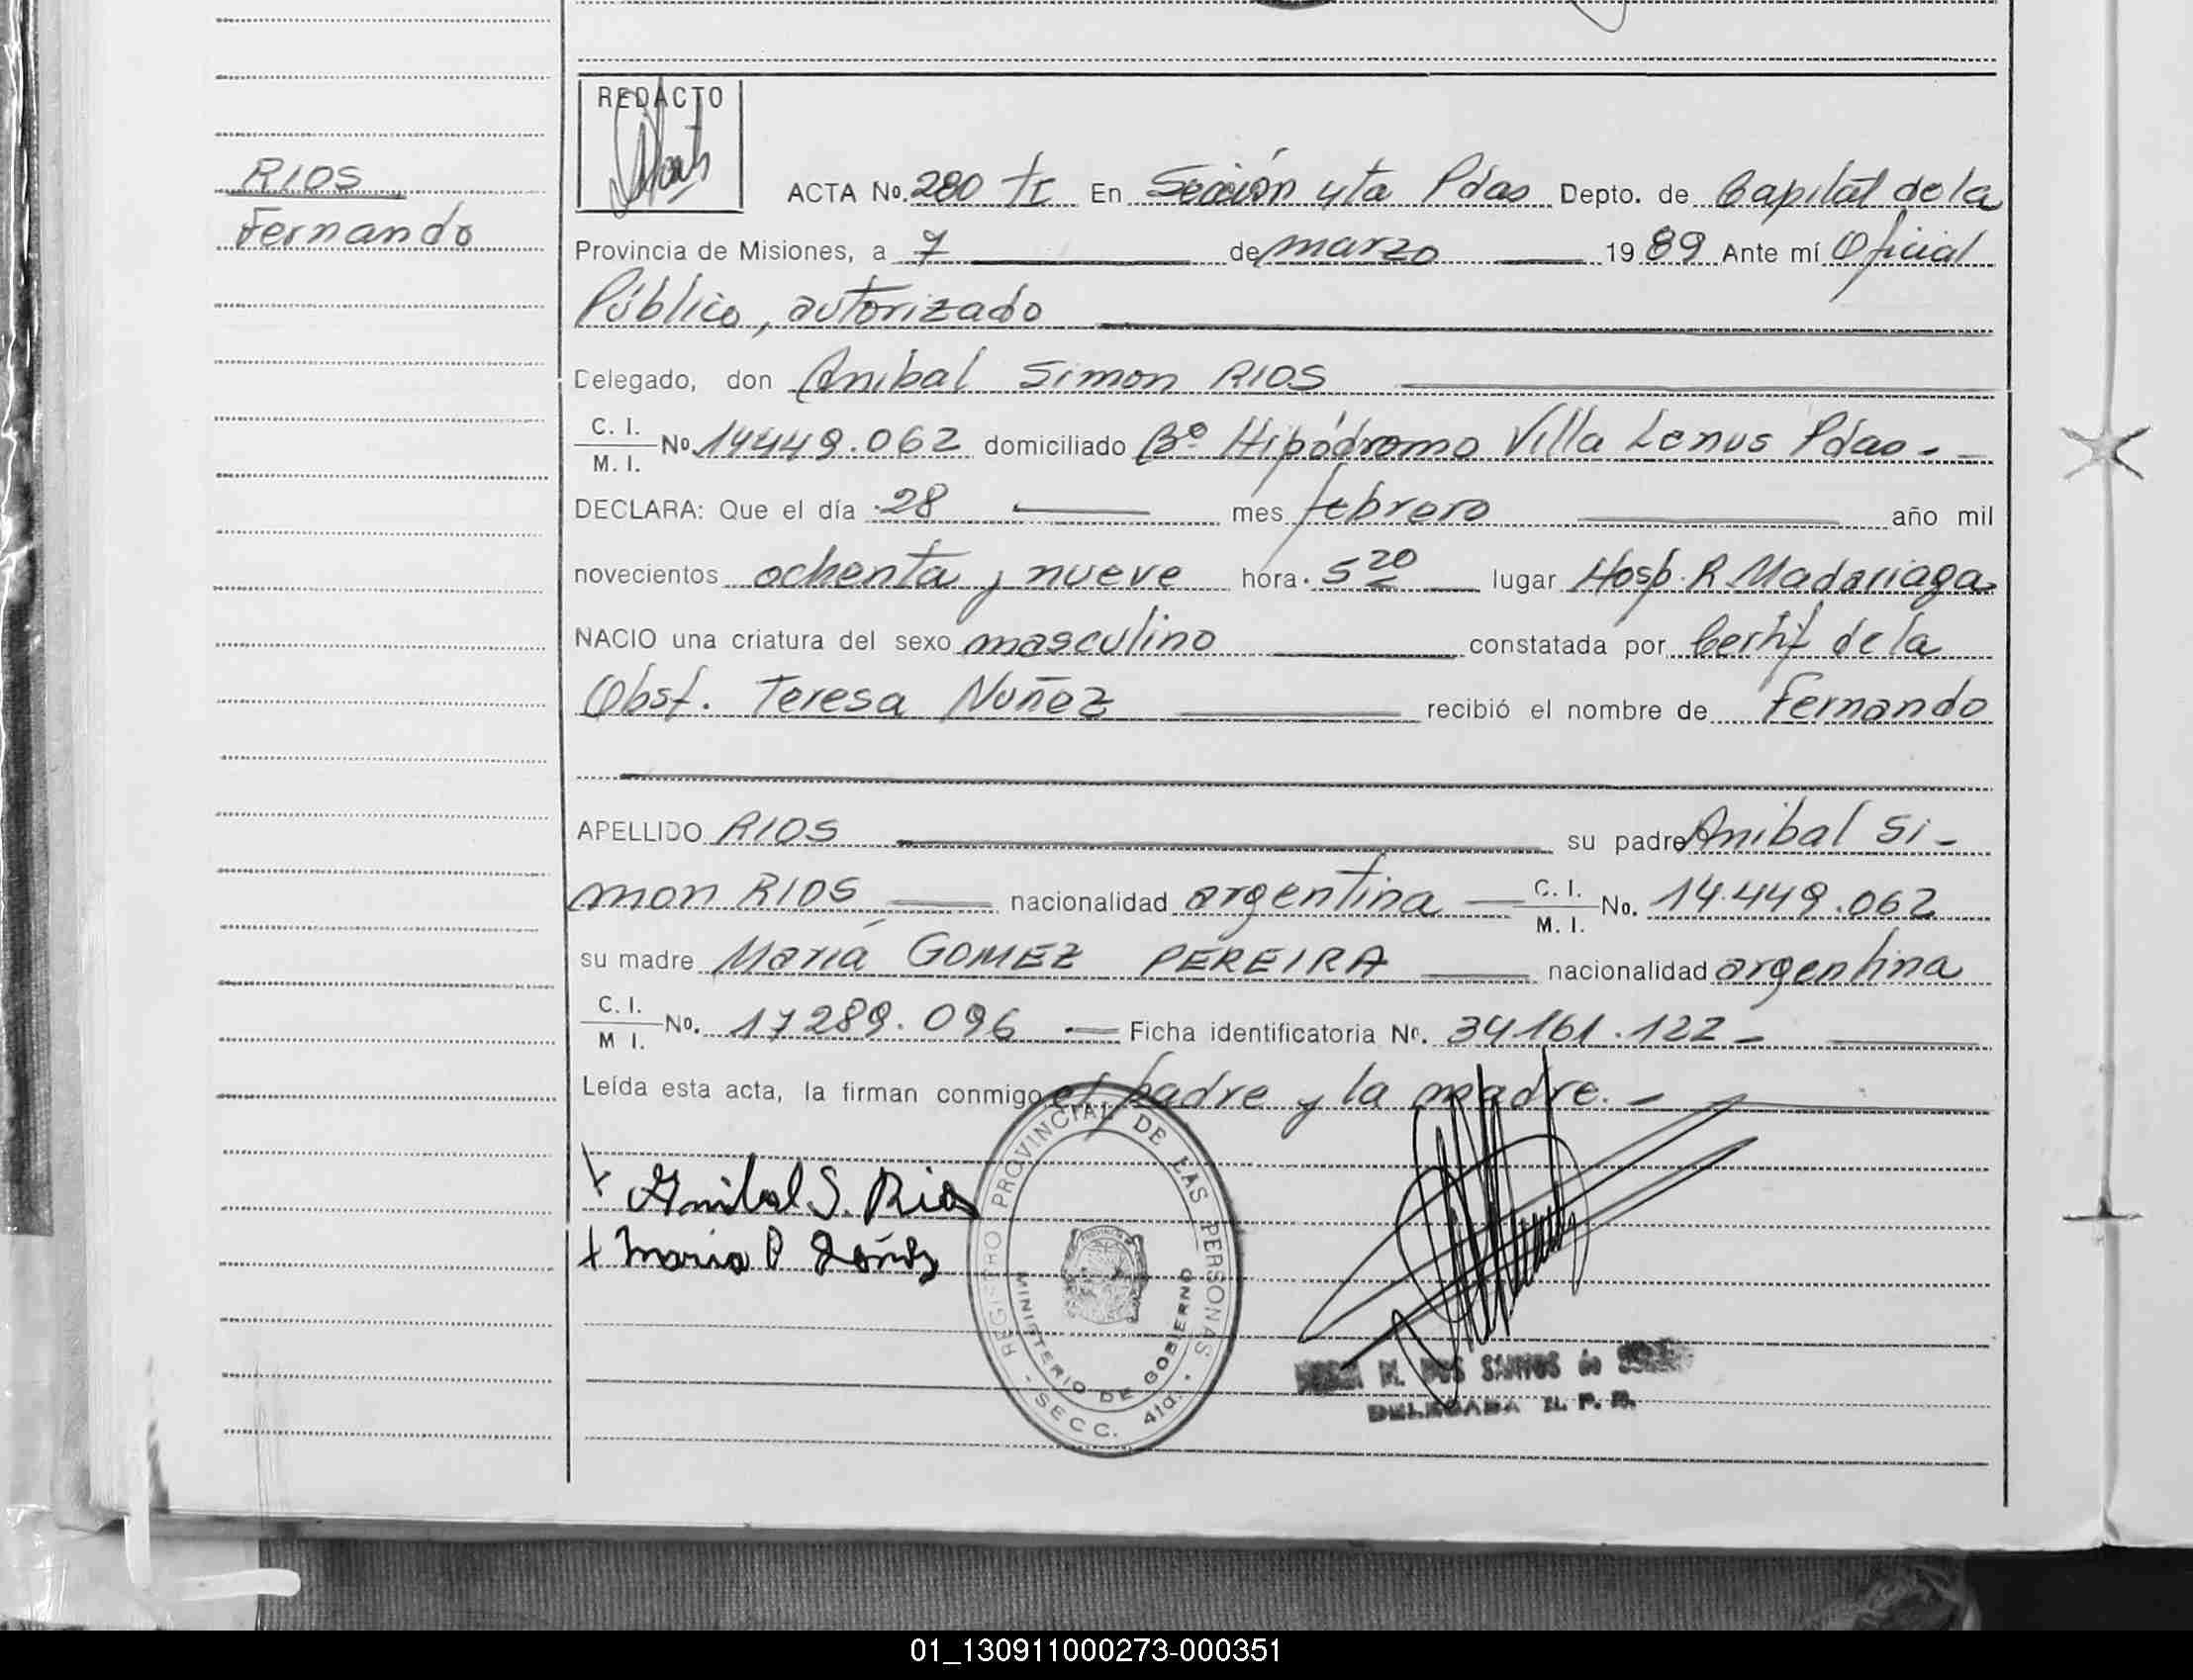 RIOS
Fernando
REDACTO
ACTA No. 280 tI En Sección 4ta Pdas Depto. de Capital de la
Provincia de Misiones, a 7 de marzo 1989 Ante mí Oficial
Público, autorizado
Delegado, don Anibal Simon RIOS
C. I. / M. I. No. 14449.062 domiciliado Bº Hipódromo Villa Lanus Pdas.-
DECLARA: Que el día 28 mes febrero año mil
novecientos ochenta y nueve hora. 5 20 lugar Hosp. R. Madariaga
NACIO una criatura del sexo masculino constatada por Certif de la
Obst. Teresa Nuñez recibió el nombre de Fernando
APELLIDO RIOS su padre Anibal Si-
mon RIOS nacionalidad argentina C. I. / M. I. No. 14.449.062
su madre María GOMEZ PEREIRA nacionalidad argentina
C. I. / M I. No. 17289.096 Ficha identificatoria Nº. 34161.122-
Leída esta acta, la firman conmigo el padre y la madre.-
Anibal S. Rios
Maria
REGISTRO PROVINCIAL DE LAS PERSONAS
MINISTERIO DE GOBIERNO
SECC. 4ta.
M. DOS SANTOS de
DELEGADA R. P. P.
01_130911000273-000351